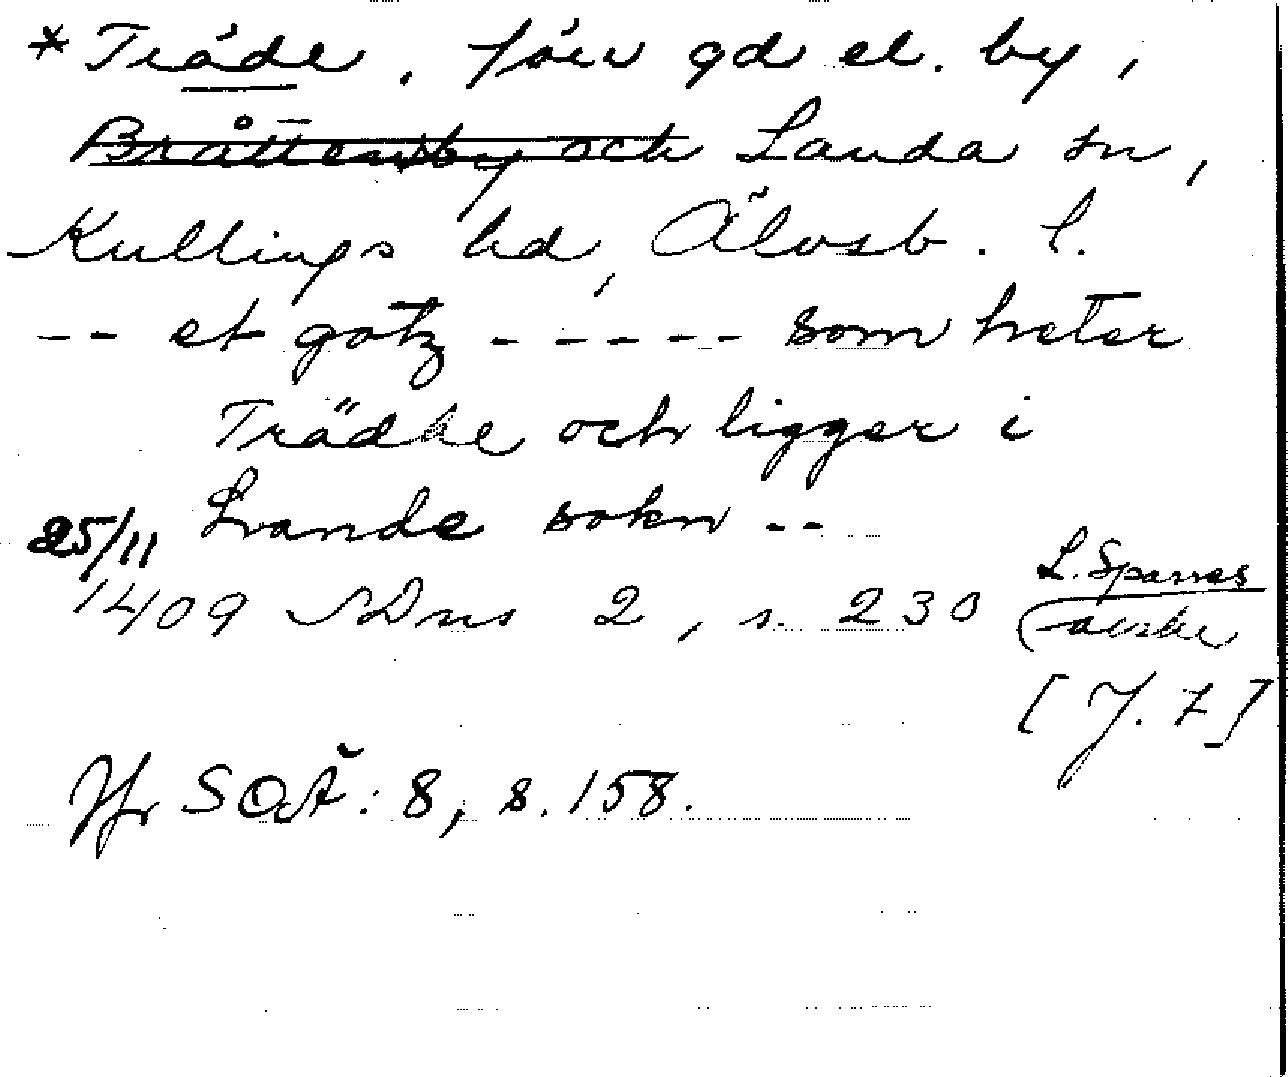 *Träde, förr gd el. by,
Bråttensby och Landa sn,
Kullings hd, Älvsb. l.
-- et gotz ----- som heter
Trädhe och ligger i
Lande sokn --
25/11
1409 SDns 2, s. 230
L. Sparres
[J. Z]
Jfr SOÄ: 8, s. 158.